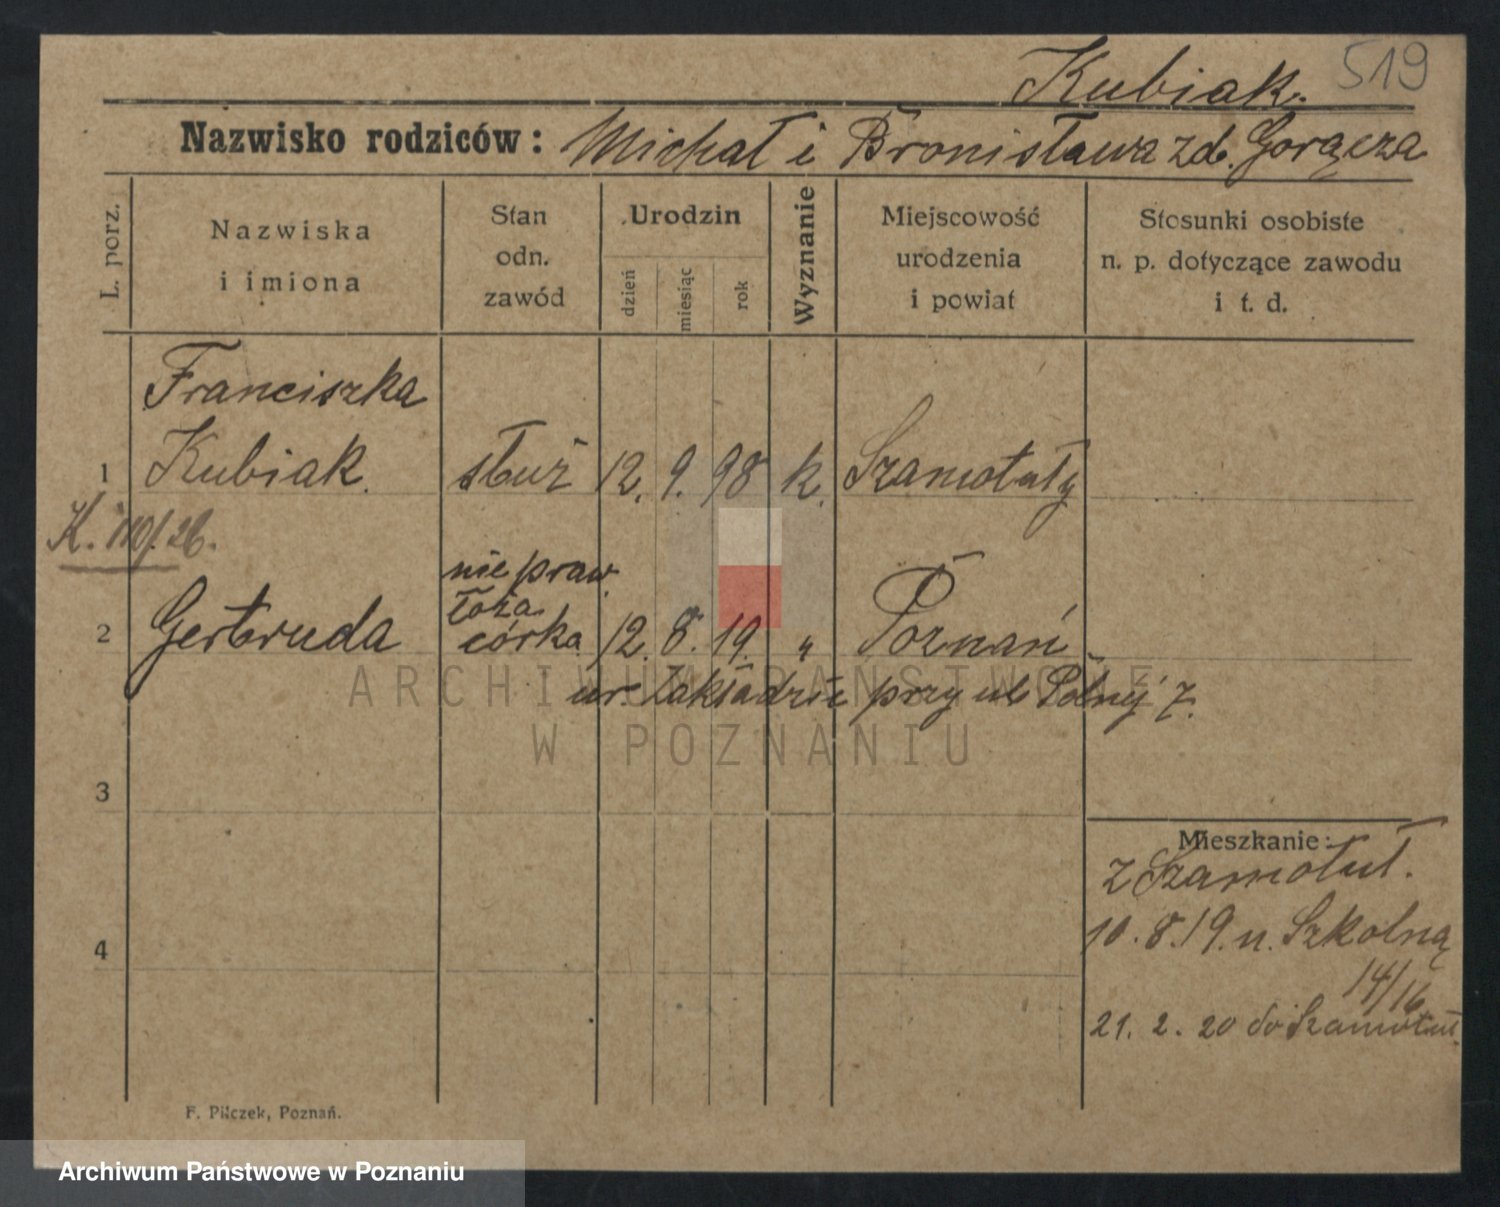 Kubiak. 519
Nazwisko rodziców: Michał i Bronisława zd. Gorącza
L. porz.
Nazwiska
i imiona
Stan
odn.
zawód
Urodzin
dzień
miesiąc
rok
Wyznanie
Miejscowość
urodzenia
i powiat
Stosunki osobiste
n. p. dotyczące zawodu
i t. d.
Franciszka
1 Kubiak. służ 12. 9. 98 k. Szamotuły
K. 110/26.
nie praw.
łoża
2 Gertruda córka 12. 8. 19. " Poznań
ur. Zakładzie przy ul Polnej 7.
ARCHIWUM PAŃSTWOWE
W POZNANIU
3
Mieszkanie:
z Szamotuł.
10. 8. 19. n. Szkolną
14/16
4
21. 2. 20 do Szamotuł.
F. Pilczek, Poznań.
Archiwum Państwowe w Poznaniu